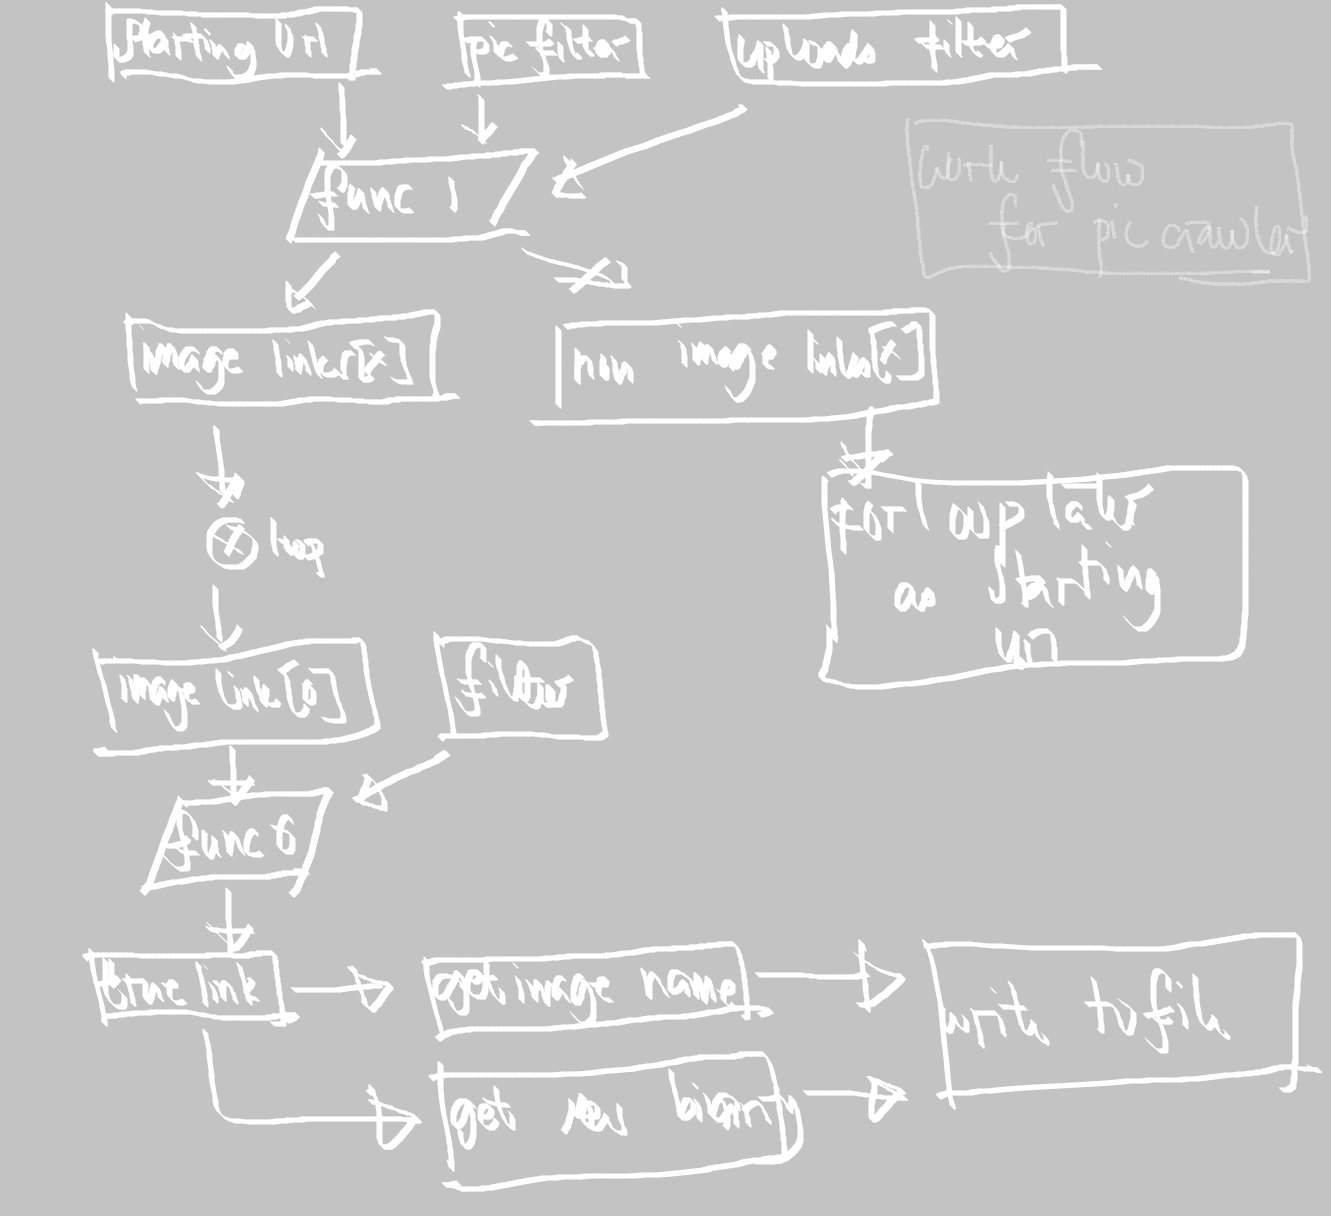 starting Url
pic filter
uploads filter
work flow
for pic crawler
func 1
image links[x]
non image links[x]
for loop later
as starting
url
loop
image link[0]
filter
func 6
true link
get image name
write to file
get binary